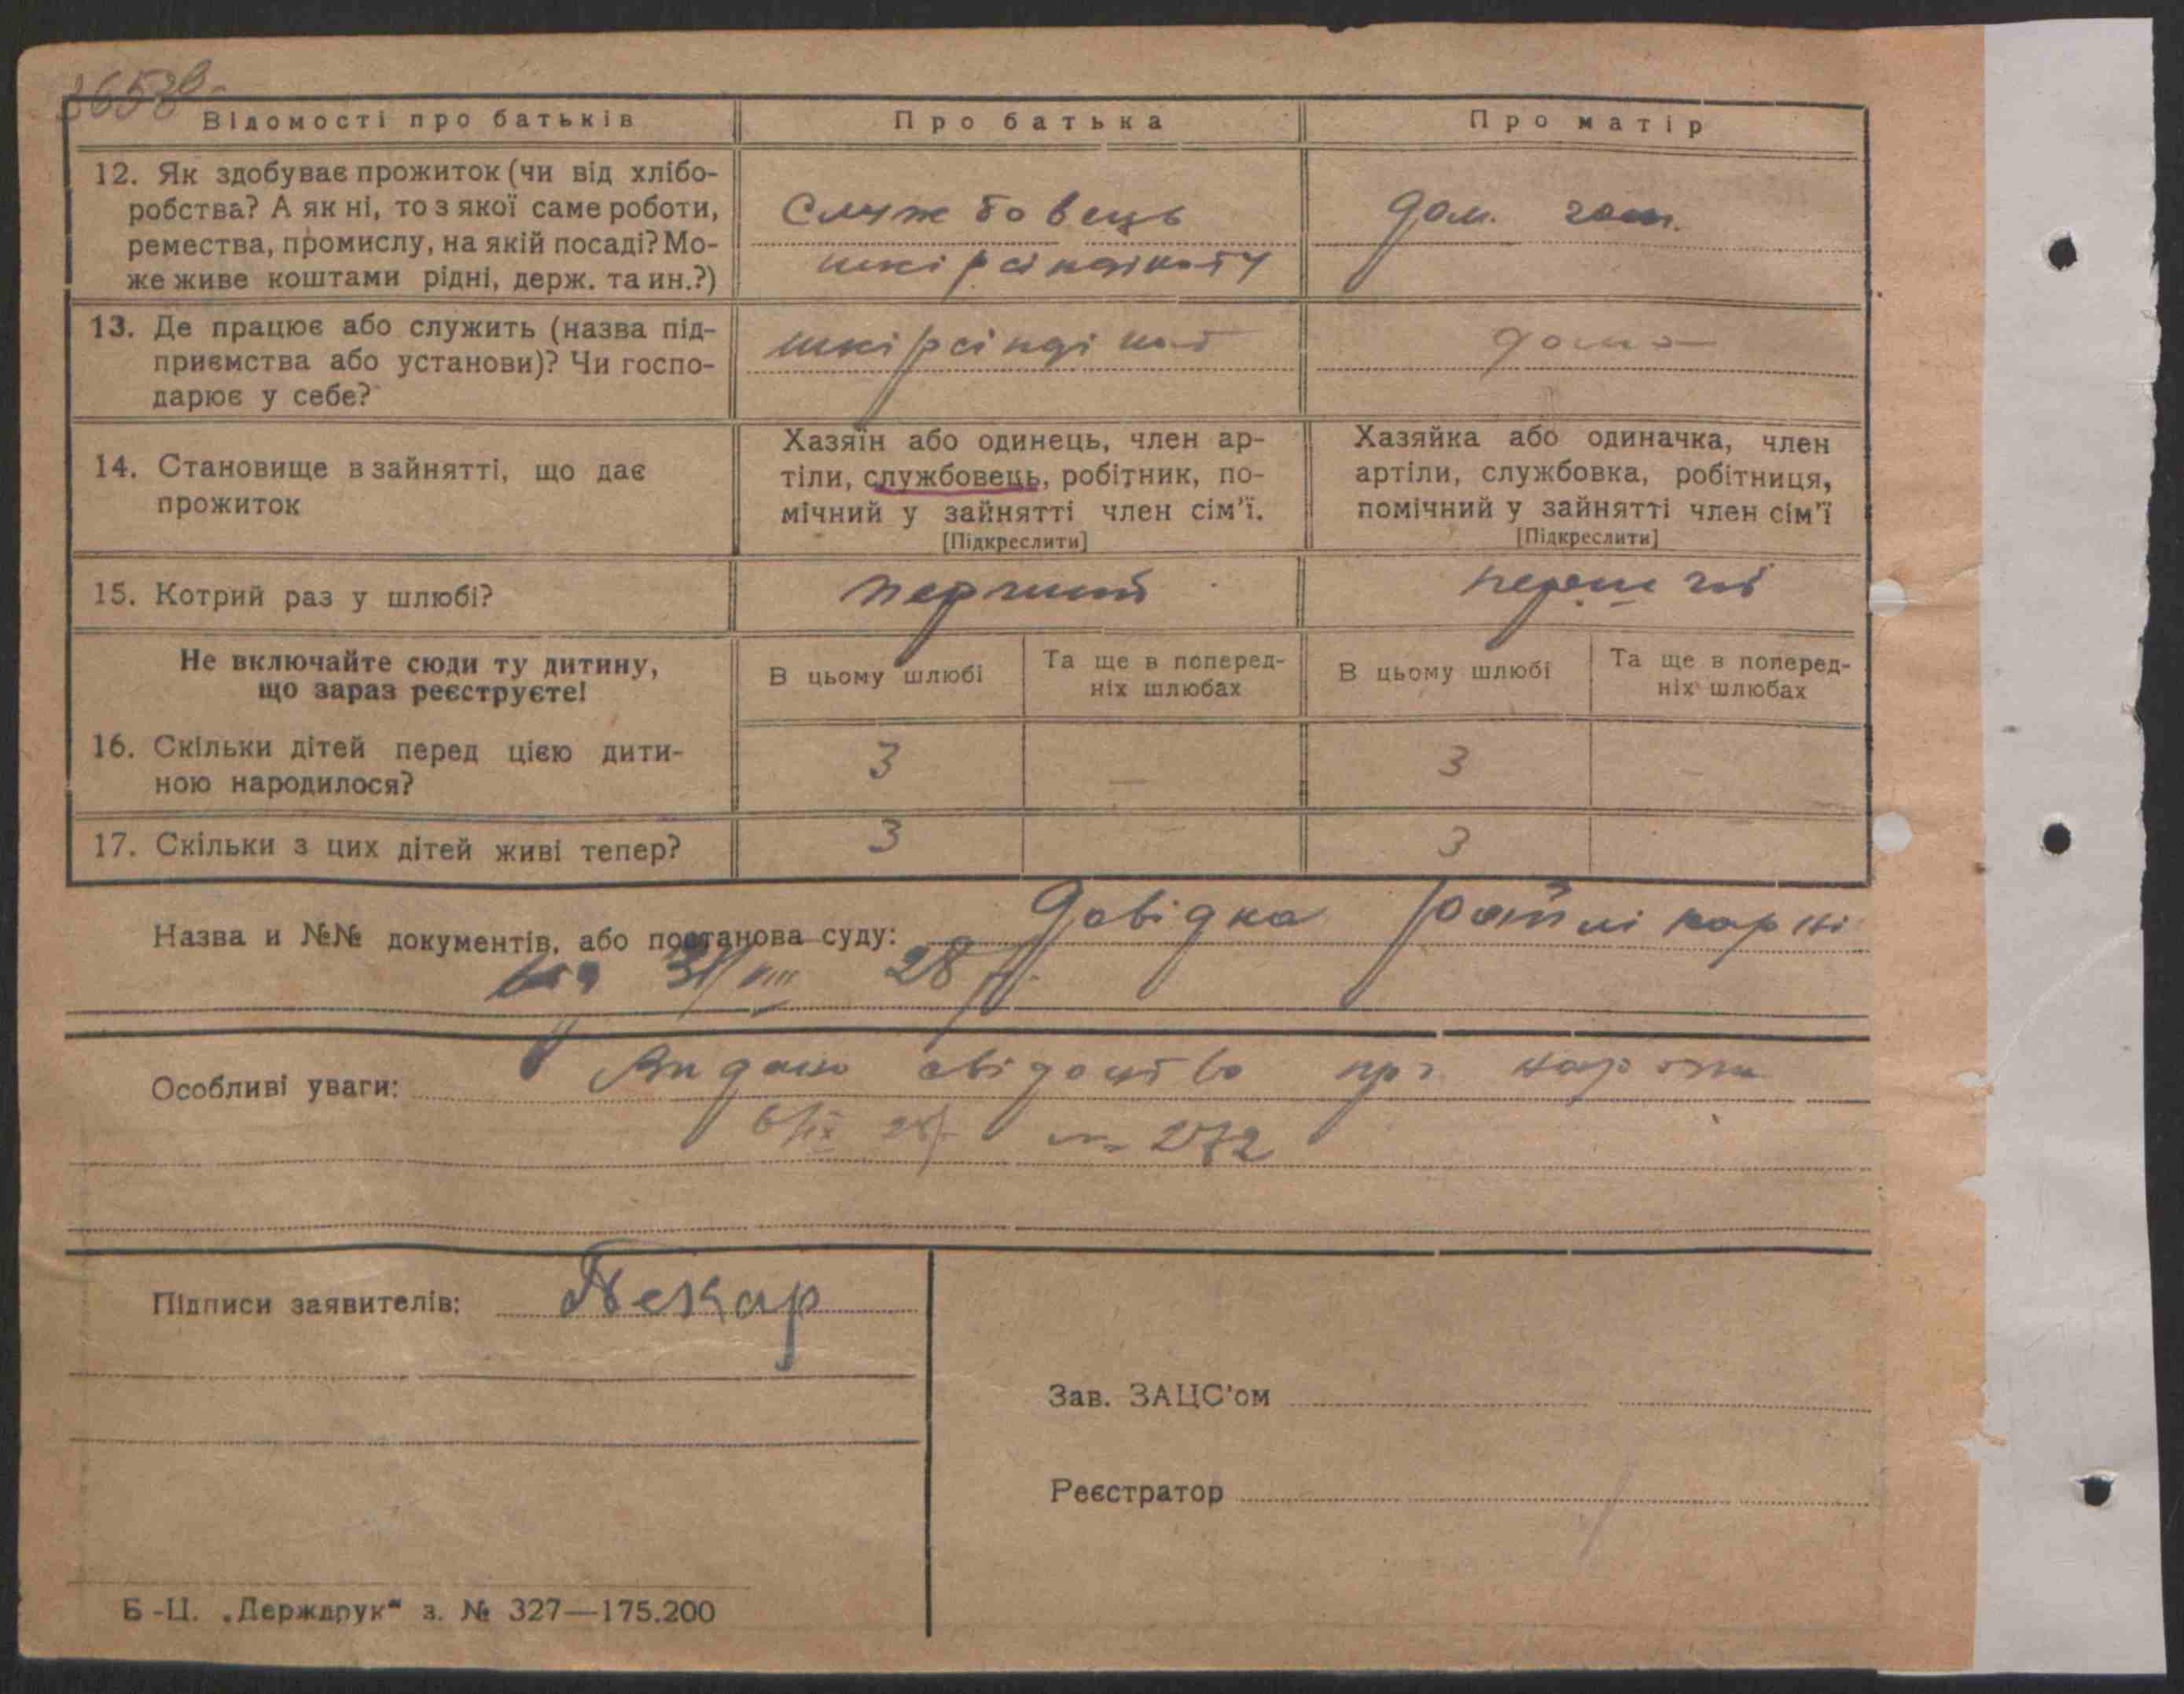 Відомості про батьків
Про батька
Про матір
12. Як здобуває прожиток (чи від хлібо-
робства? А як ні, то з якої саме роботи,
ремества, промислу, на якій посаді? Мо-
же живе коштами рідні, держ. та ин.?)
Службовець
шкірсиндикату
дом. госп.
13. Де працює або служить (назва під-
приємства або установи)? Чи госпо-
дарює у себе?
шкірсіндікат
дома
14. Становище в зайнятті, що дає
прожиток
Хазяїн або одинець, член ар-
тіли, службовець, робітник, по-
мічний у зайнятті член сім'ї.
[Підкреслити]
Хазяйка або одиначка, член
артіли, службовка, робітниця,
помічний у зайнятті член сім'ї
[Підкреслити]
15. Котрий раз у шлюбі?
перший
Не включайте сюди ту дитину,
що зараз реєструєте!
В цьому шлюбі
Та ще в поперед-
ніх шлюбах
В цьому шлюбі
Та ще в поперед-
ніх шлюбах
16. Скільки дітей перед цією дити-
ною народилося?
3 — 3 –
17. Скільки з цих дітей живі тепер?
3 3
Назва и №№ документів, або постанова суду: Довідка
31/VIII 28 р.
Особливі уваги: Видано свідоцтво про
6/IX 28 р. № 272
Підписи заявителів: Пекар
Зав. ЗАЦС'ом
Реєстратор
Б-Ц. „Держдрук“ з. № 327—175.200